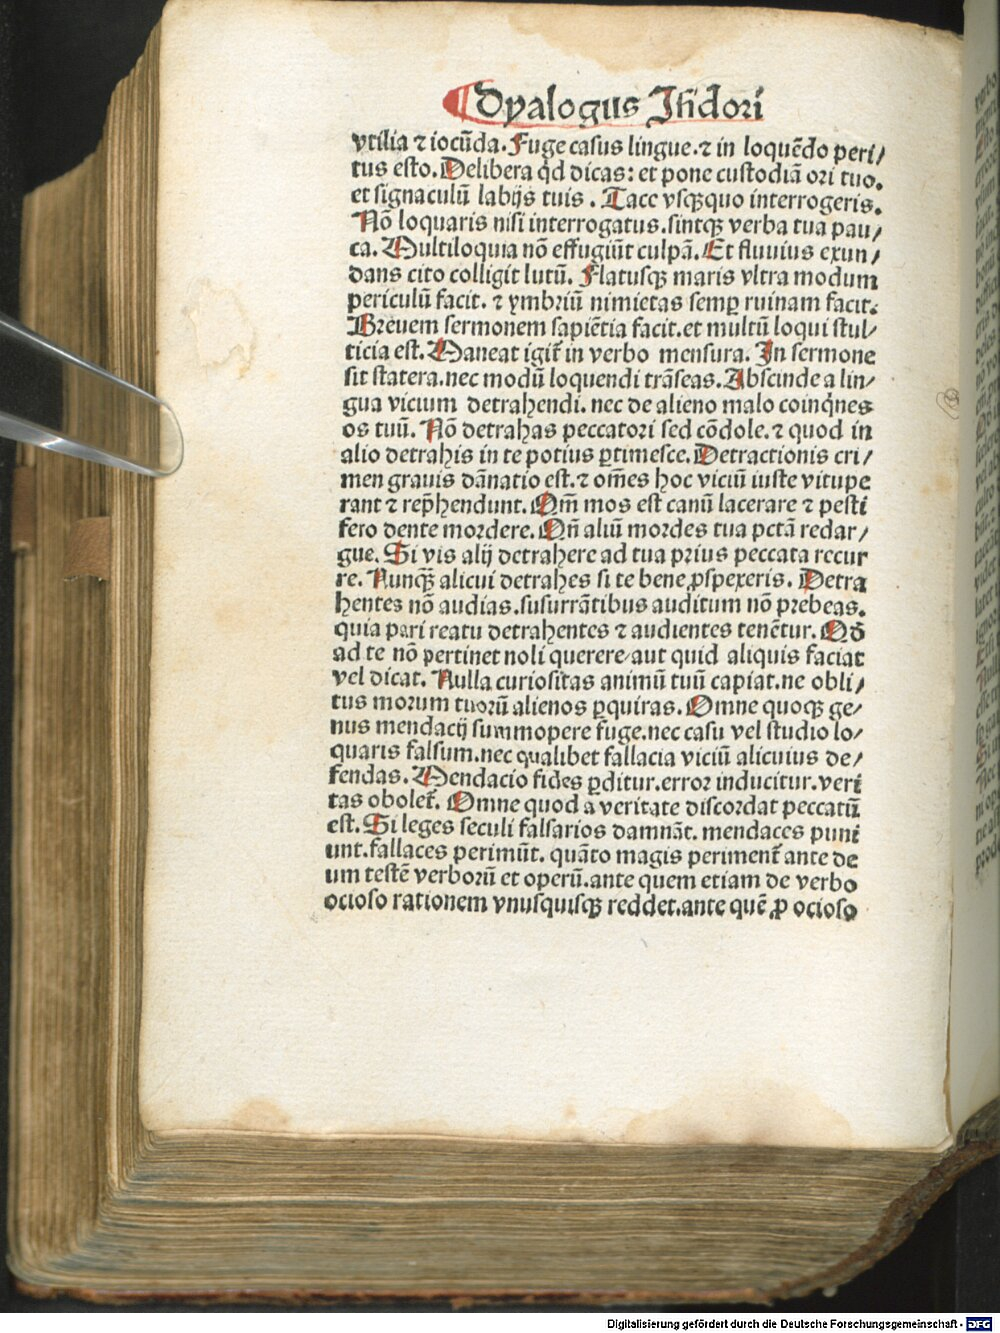 Dyalogus Isidori
vtilia ⁊ iocūda. Fuge casus lingue. ⁊ in loquēdo peri/
tus esto. Delibera qd dicas: et pone custodiā ori tuo.
et signaculū labijs tuis. Tace vsqꝫquo interrogeris.
Nō loquaris nisi interrogatus. sintqꝫ verba tua pau/
ca. Multiloquia nō effugiūt culpā. Et fluvius exun/
dans cito colligit lutū. Flatusqꝫ maris vltra modum
periculū facit. ⁊ ymbriū nimietas semꝑ ruinam facit.
Brevem sermonem sapiētia facit. et multū loqui stul/
ticia est. Maneat igit̄ in verbo mensura. In sermone
sit statera. nec modū loquendi trāseas. Abscinde a lin/
gua vicium detrahendi. nec de alieno malo coinq̇nes
os tuū. Nō detrahas peccatori sed cōdole. ⁊ quod in
alio detrahis in te potius ꝑtimesce. Detractionis cri/
men grauis dānatio est. ⁊ om̄es hoc viciū iuste vitupe
rant ⁊ rep̄hendunt. Qm̄ mos est canū lacerare ⁊ pesti
fero dente mordere. Qn̄ aliū mordes tua pctā redar/
gue. Si vis alij detrahere ad tua prius peccata recur
re. Nunqꝫ̄ alicui detrahes si te bene ꝓspexeris. Detra
hentes nō audias. susurrātibus auditum nō prebeas.
quia pari reatu detrahentes ⁊ audientes tenētur. Qḋ
ad te nō pertinet noli querere/aut quid aliquis faciat
vel dicat. Nulla curiositas animū tuū capiat. ne obli/
tus morum tuorū alienos ꝑquiras. Omne quoqꝫ ge/
nus mendacij summopere fuge. nec casu vel studio lo/
quaris falsum. nec qualibet fallacia viciū alicuius de/
fendas. Mendacio fides ꝑditur. error inducitur. veri
tas obolet̄. Omne quod a veritate discordat peccatū
est. Si leges seculi falsarios damnāt. mendaces puni
unt. fallaces perimūt. quāto magis periment̄ ante de
um testē verborū et operū. ante quem etiam de verbo
ocioso rationem vnusquisqꝫ reddet. ante quē ꝓ ocioso
Digitalisierung gefördert durch die Deutsche Forschungsgemeinschaft - DFG